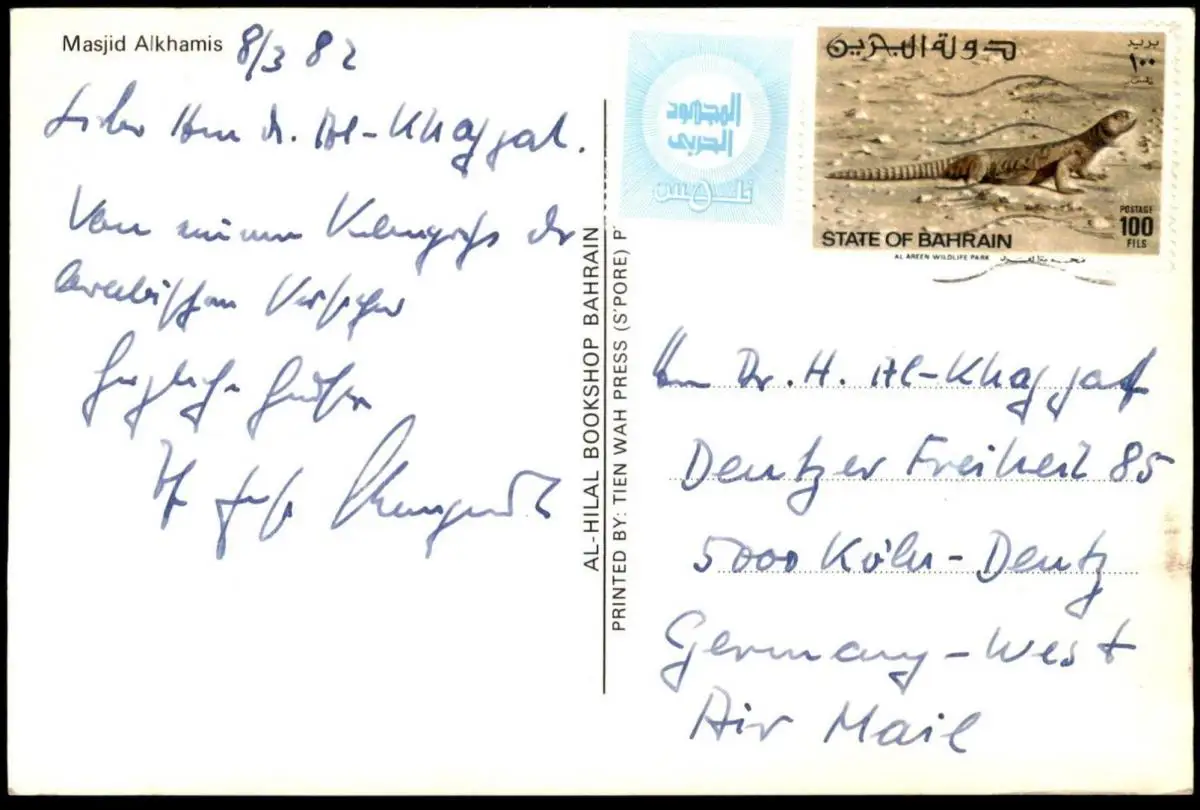 Masjid Alkhamis
8/3 82
Lieber Herr Dr. Al-Khayyat.
Von
der
Arabischen
Herzliche Grüße
Ihr
AL-HILAL BOOKSHOP BAHRAIN
PRINTED BY: TIEN WAH PRESS (S'PORE) P
المجهود
الحربي
فلس
دولة البحرين
بريد
١٠٠
فلس
POSTAGE
100
FILS
STATE OF BAHRAIN
AL AREEN WILDLIFE PARK
Herrn Dr. H. Al-Khayyat
Deutzer Freiheit 85
5000 Köln-Deutz
Germany-West
Air Mail